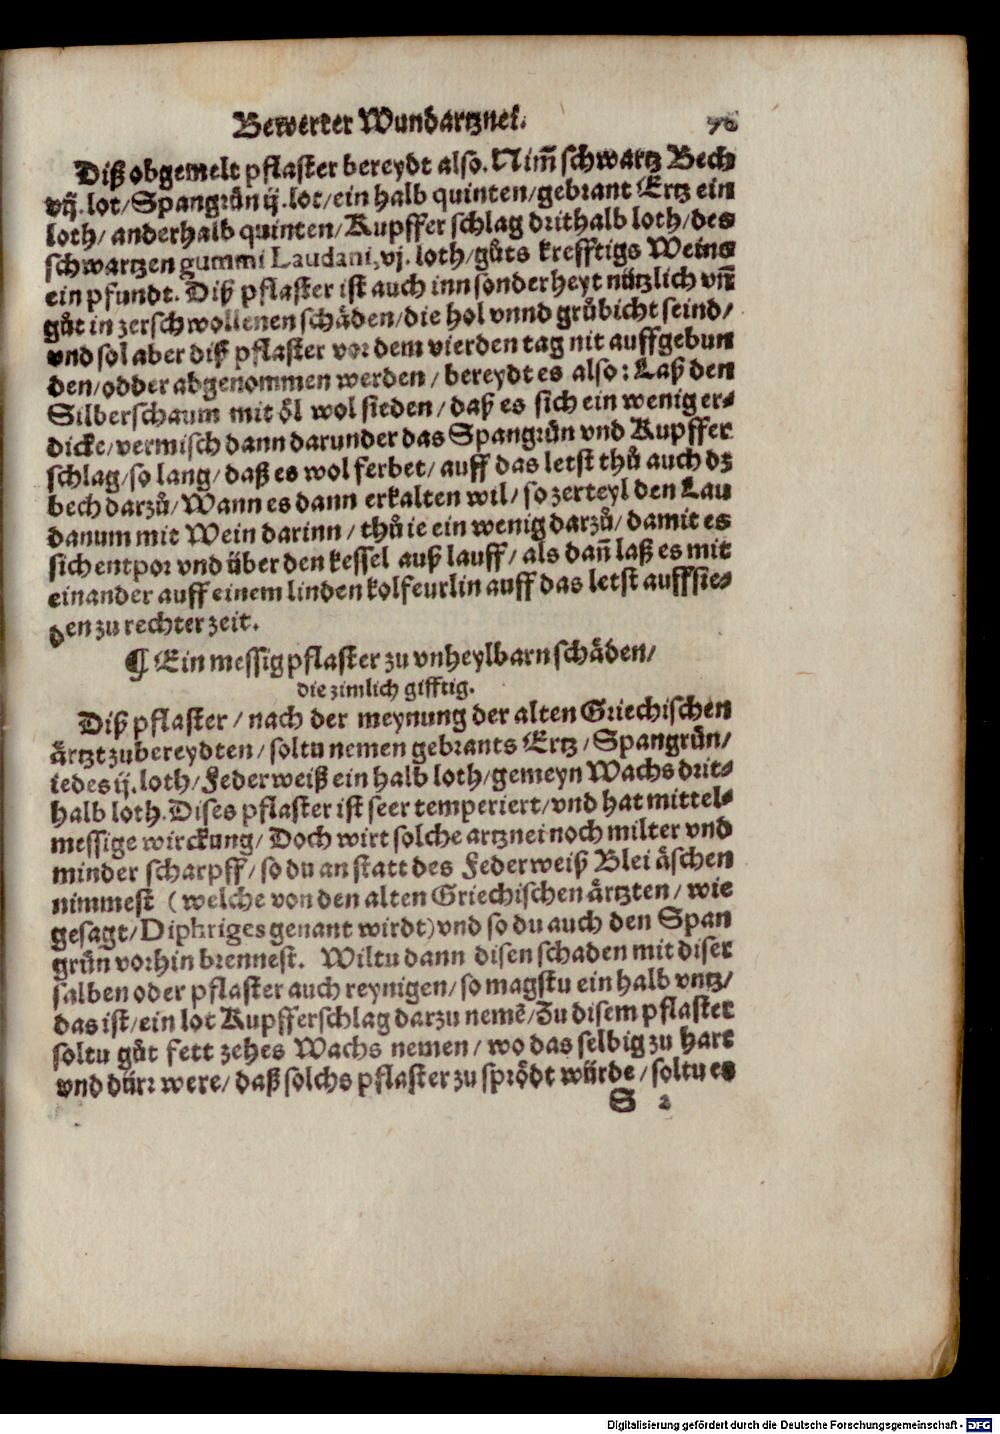 Bewerter Wundartznei. 70
Diß obgemelt pflaster bereydt also. Nim̄ schwartz Bech
vij. lot/Spangrůn ij. lot/ein halb quinten/gebrant Ertz ein
loth/ anderhalb quinten/Kupffer schlag drithalb loth/des
schwartzen gummi Laudani,vj. loth/gůts krefftigs Weins
ein pfundt. Diß pflaster ist auch inn sonderheyt nützlich vn̄
gůt in zerschwollenen schäden/die hol vnnd grůbicht seind/
vnd sol aber diß pflaster vor dem vierden tag nit auffgebun
den/odder abgenommen werden / bereydt es also: Laß den
Silberschaum mit öl wol sieden/ daß es sich ein wenig er-
dicke/vermisch dann darunder das Spangrün vnd Kupffer
schlag/so lang/ daß es wol ferbet/ auff das letst thů auch dz
bech darzů/Wann es dann erkalten wil/ so zerteyl den Lau
danum mit Wein darinn / thů ie ein wenig darzů/ damit es
sich entpor vnd über den kessel auß lauff/ als dan̄ laß es mit
einander auff einem linden kolfeurlin auff das letst auffsie-
den zu rechter zeit.
¶ Ein messig pflaster zu vnheylbarn schäden/
die zimlich gifftig.
Diß pflaster / nach der meynung der alten Griechischen
ärtzt zubereydten/ soltu nemen gebrants Ertz / Spangrün/
iedes ij. loth/Federweiß ein halb loth/gemeyn Wachs drit-
halb loth. Dises pflaster ist seer temperiert/vnd hat mittel-
messige wirckung/ Doch wirt solche artznei noch milter vnd
minder scharpff/ so du an statt des Federweiß Blei äschen
nimmest (welche von den alten Griechischen ärtzten/ wie
gesagt/Diphriges genant wirdt) vnd so du auch den Span
grün vorhin brennest. Wiltu dann disen schaden mit diser
salben oder pflaster auch reynigen/so magstu ein halb vntz/
das ist/ein lot Kupfferschlag darzu nemē/Zu disem pflaster
soltu gůt fett zehes Wachs nemen/ wo das selbig zu hart
vnd dürr were/ daß solchs pflaster zu sprödt würde/soltu es
S 2
Digitalisierung gefördert durch die Deutsche Forschungsgemeinschaft - DFG